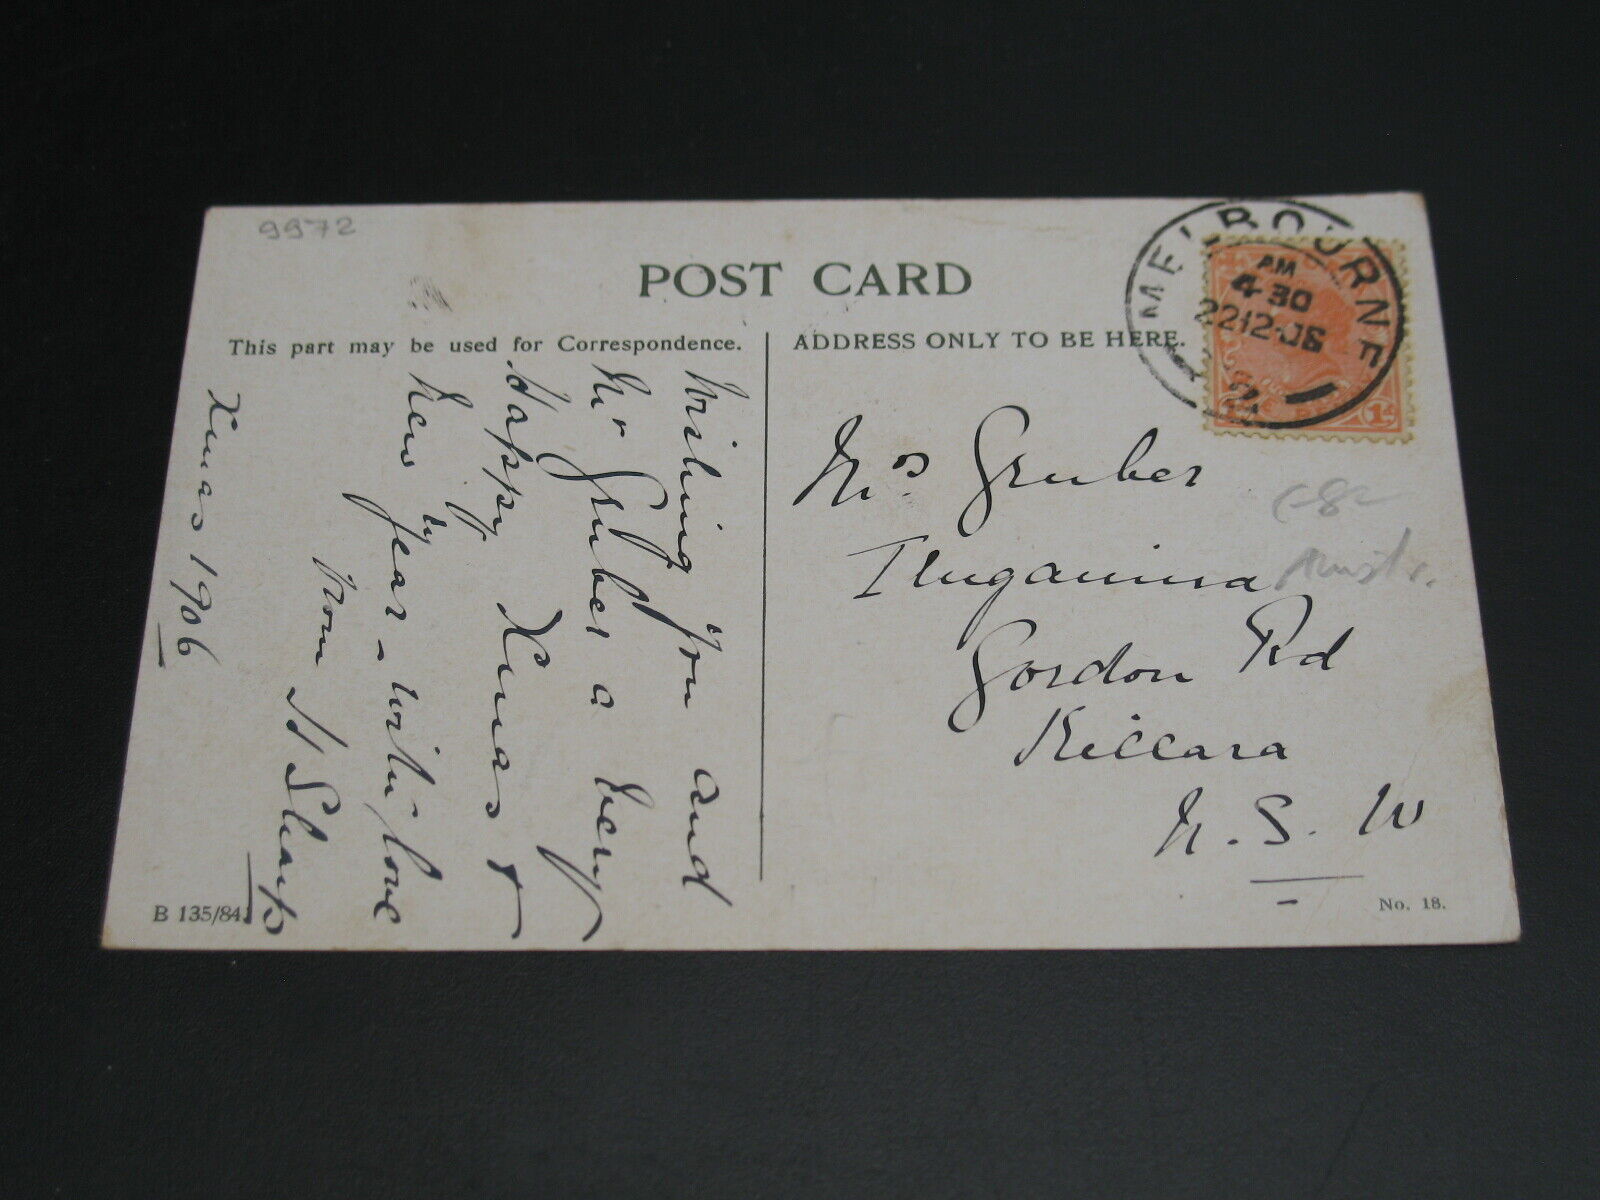 9972
POST CARD
This part may be used for Correspondence.
ADDRESS ONLY TO BE HERE.
MELBOURNE
AM
4-30
22-12-06
Wishing you and
Mr Gruber a very
Happy Xmas &
New Year - with love
by
from H Sharp
Xmas 1906
Mrs Gruber
Gordon Rd
Killara
N. S. W
B 135/84.
No. 18.